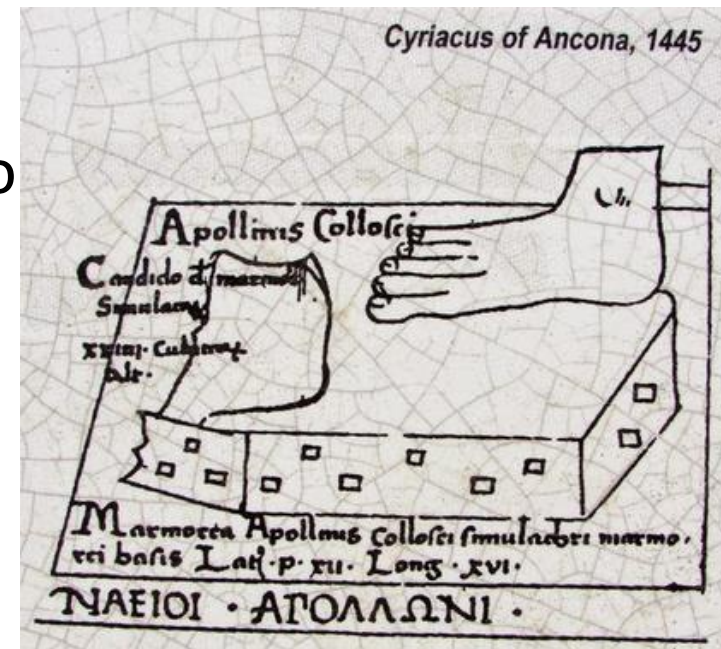 Cyriacus of Ancona, 1445
o
Apollinis Collosci
Candido d marmo
Simulacru
xxiiii. Cubitor
alt.
Marmorea Apollinis Collosci simulacri marmo.
rei basis Lat. p. xii. Long. xvi.
ΝΑΕΙΟΙ · ΑΠΟΛΛΩΝΙ ·